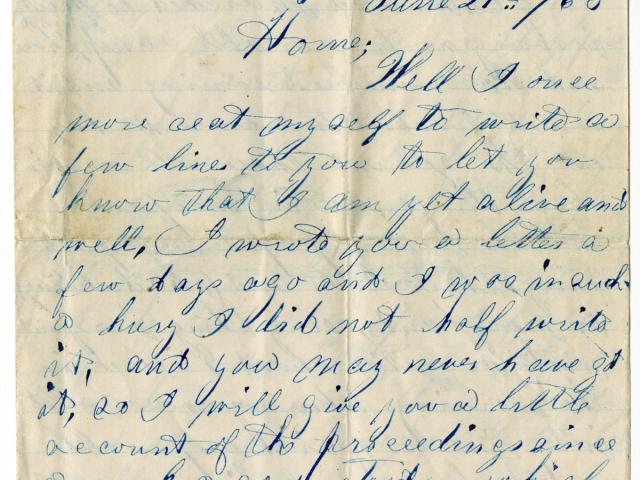 June 21st /65
Home;
Well I once
more seat my self to write a
few lines to you to let you
know that I am yet alive and
well, I wrote you a letter a
few days ago and I was in such
a hury I did not half write
it, and you may never have got
it, so I will give you a little
account of the proceedings since